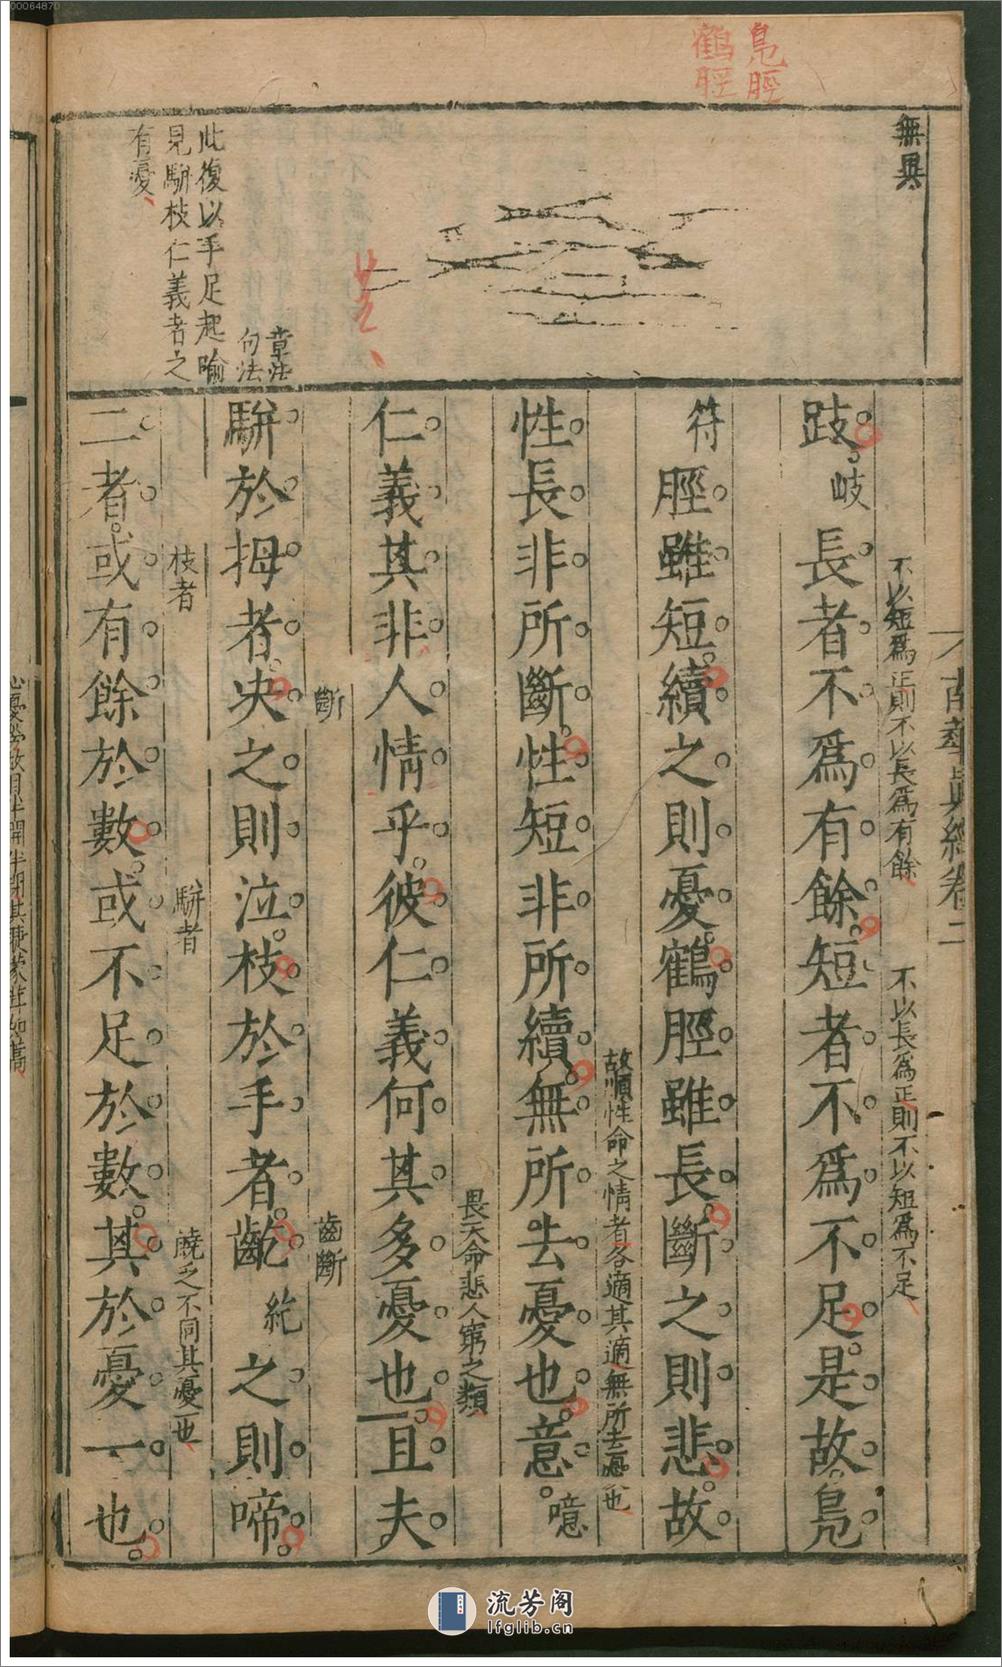 00064870
鳧脛
鶴脛
無異
章法
句法
此復以手足起喻
見駢枝仁義者之
有憂
南華真經卷二
不以短為正則不以長為有餘
不以長為正則不以短為不足
跂岐長者不為有餘短者不為不足是故鳧
符脛雖短續之則憂鶴脛雖長斷之則悲故
故順性命之情者各適其適無所去憂也
性長非所斷性短非所續無所去憂也意噫
畏天命悲人窮之類
仁義其非人情乎彼仁義何其多憂也且夫
斷
齒斷
駢於拇者決之則泣枝於手者齕紇之則啼
枝者
駢者
曉之不同其憂一也
二者或有餘於數或不足於數其於憂一也
流芳阁
lfglib.cn